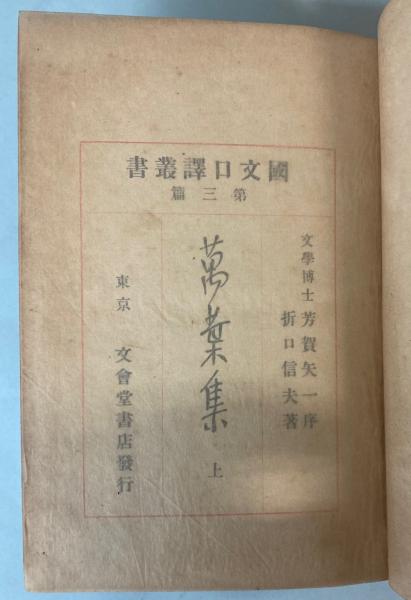 國文口譯叢書
第三篇
文學博士 芳賀矢一序
折口信夫著
萬葉集 上
東京 文會堂書店發行